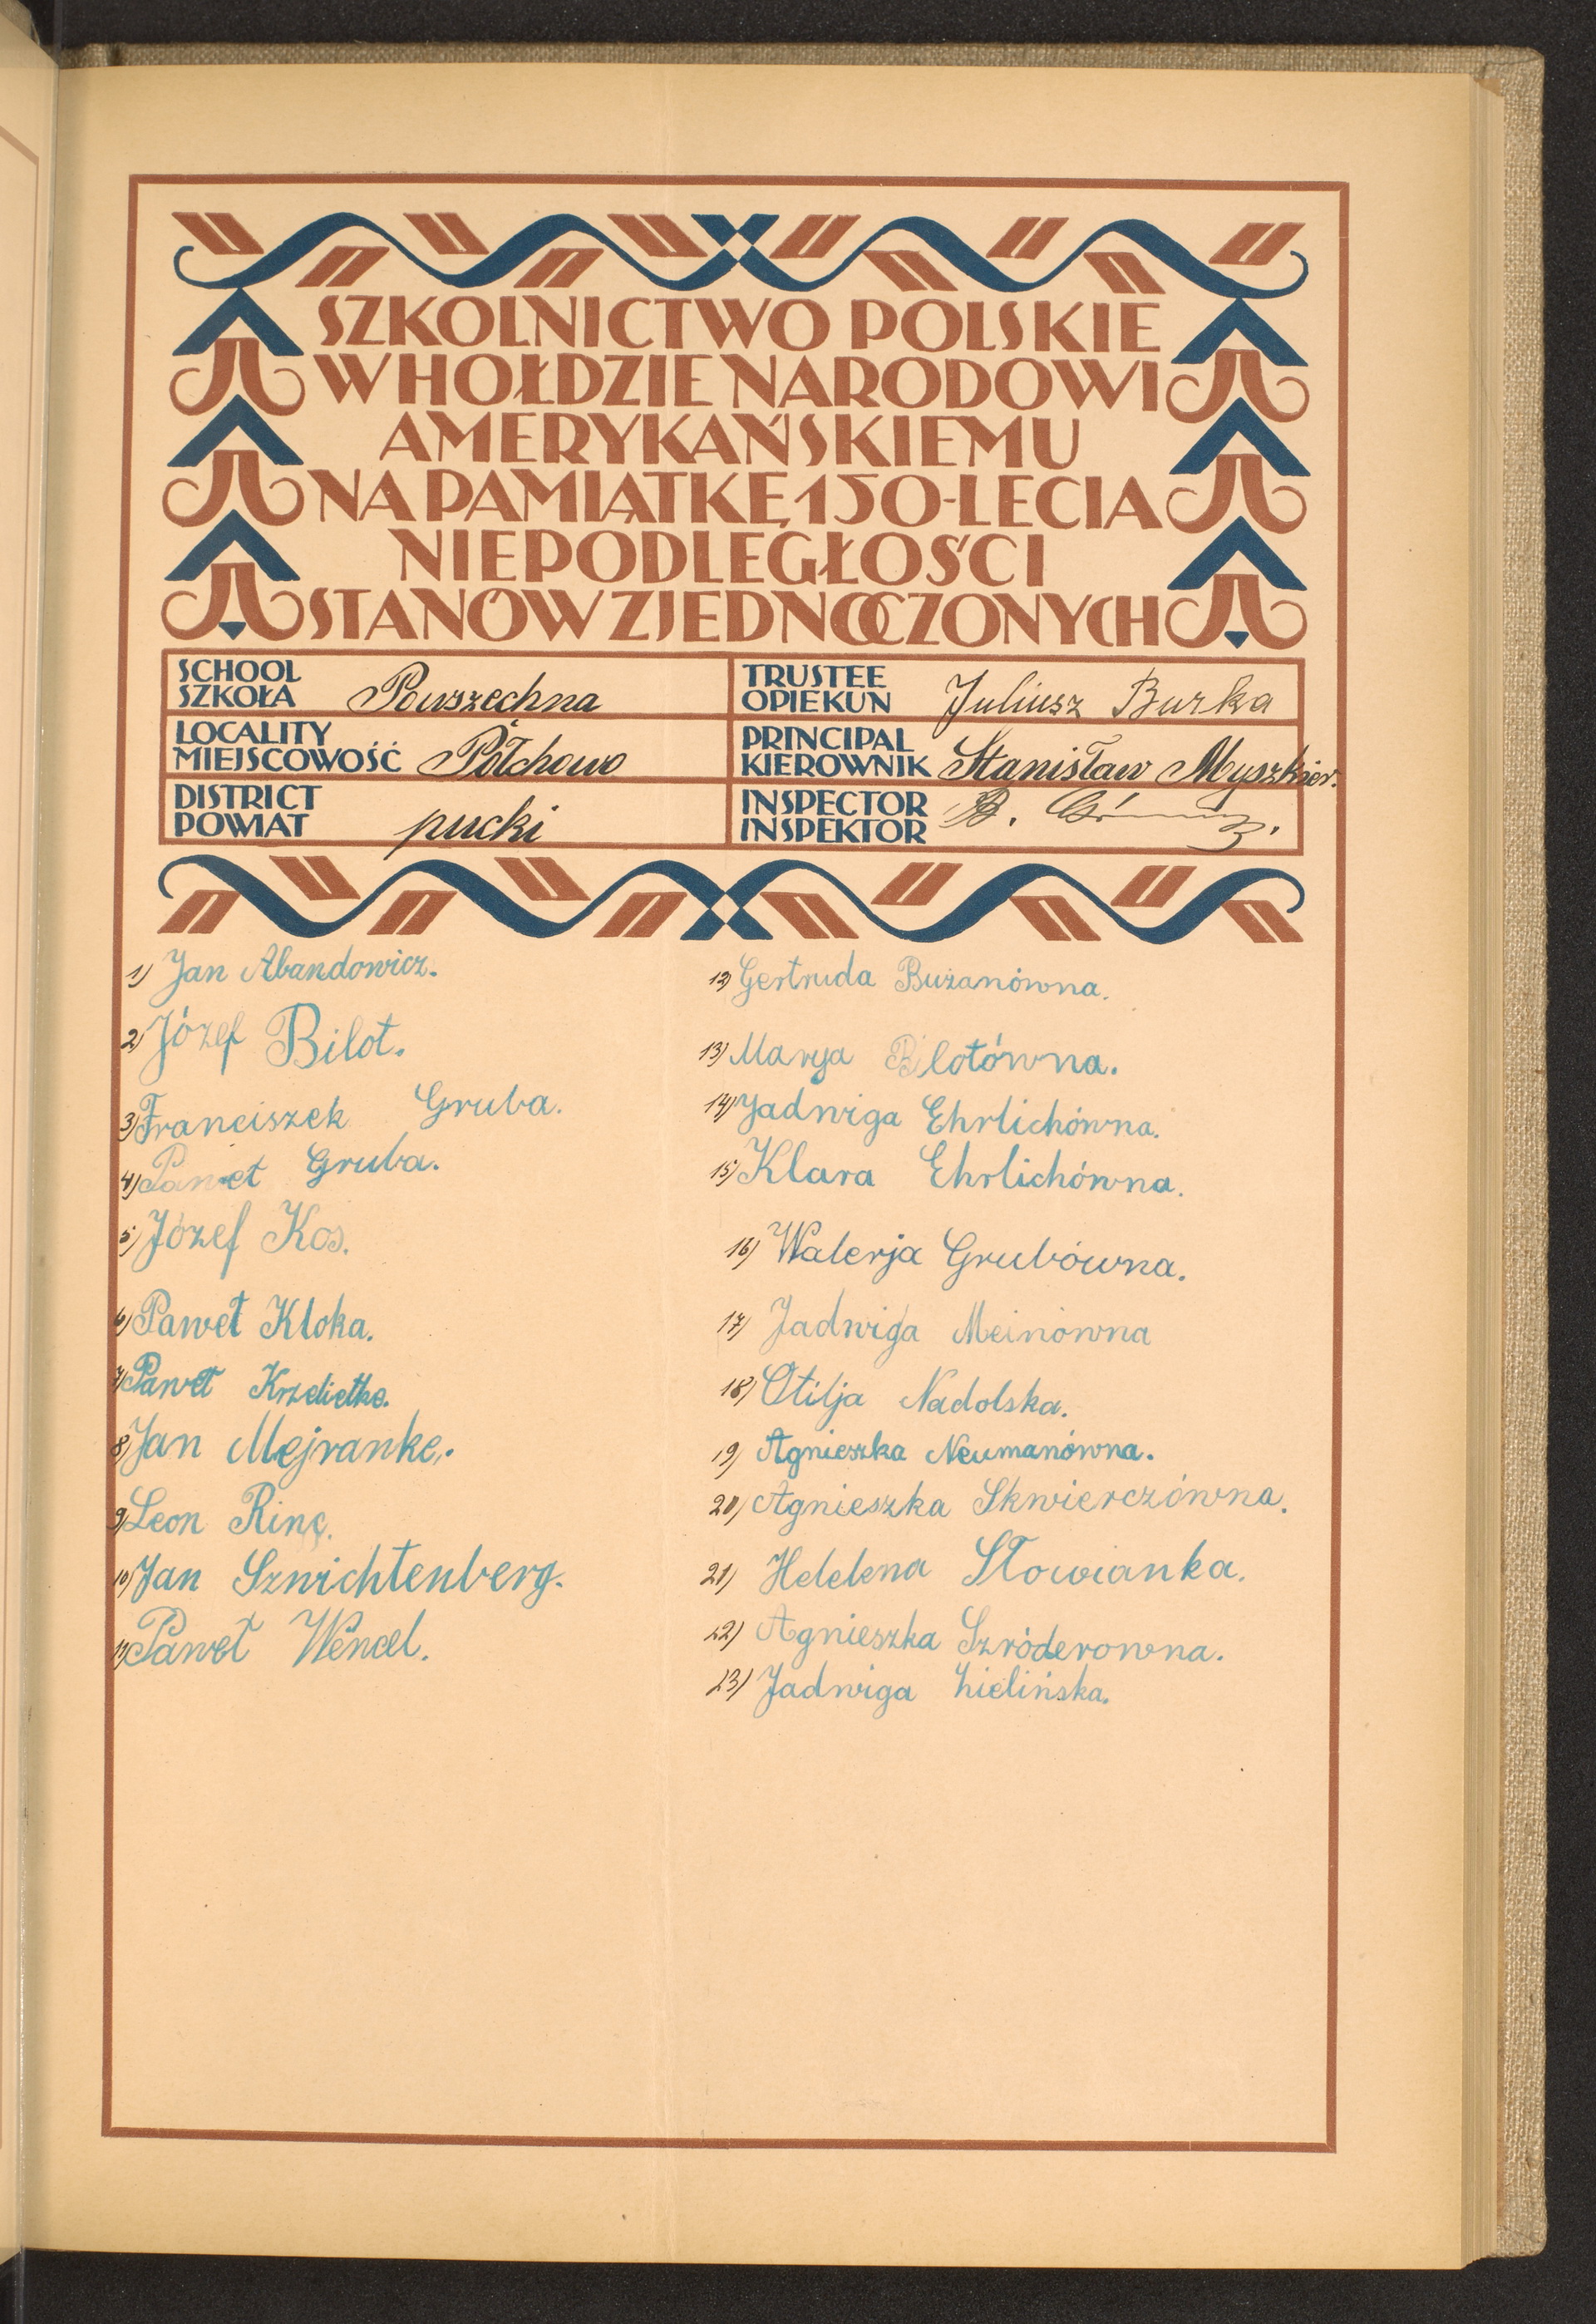 SZKOLNICTWO POLSKIE
W HOŁDZIE NARODOWI
AMERYKAŃSKIEMU
NA PAMIĄTKĘ 150-LECIA
NIEPODLEGŁOŚCI
STANÓW ZJEDNOCZONYCH
SCHOOL
SZKOŁA Powszechna
TRUSTEE
OPIEKUN Juliusz Burka
LOCALITY
MIEJSCOWOŚĆ Połchowo
PRINCIPAL
KIEROWNIK Stanisław Myszkier.
DISTRICT
POWIAT pucki
INSPECTOR
INSPEKTOR B.
1) Jan Abandowicz.
2) Józef Bilot.
3) Franciszek Gruba.
4) Paweł Gruba.
5) Józef Kos.
6) Paweł Kloka.
7) Paweł
8) Jan Mejranke.
9) Leon Rinc.
10) Jan Sznichtenberg.
11) Paweł Wencel.
12) Gertruda Bużanówna.
13) Marya Blotówna.
14) Jadwiga Ehrlichówna.
15) Klara Ehrlichówna.
16) Walerja Grubówna.
17) Jadwiga Meinówna
18) Otilja Nadolska.
19) Agnieszka Neumanówna.
20) Agnieszka Skwierczówna.
21) Helelena Słowianka.
22) Agnieszka Szróderowna.
23) Jadwiga Zielińska.